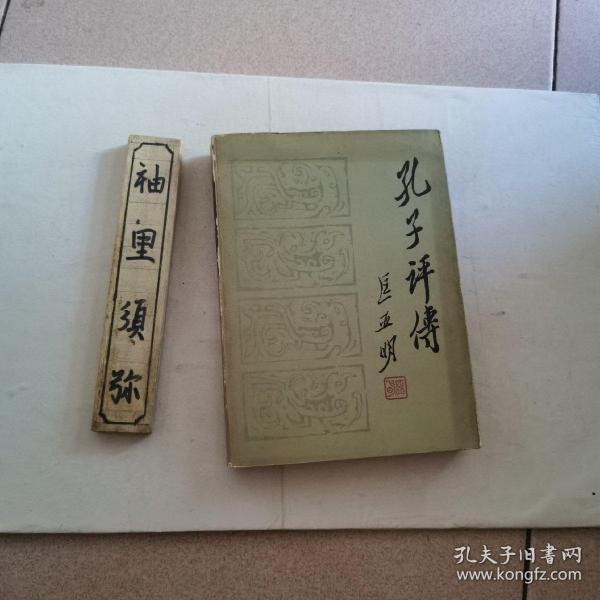 袖里須弥
孔子评傳
匡亚明
孔夫子旧書网
www.kongfz.com